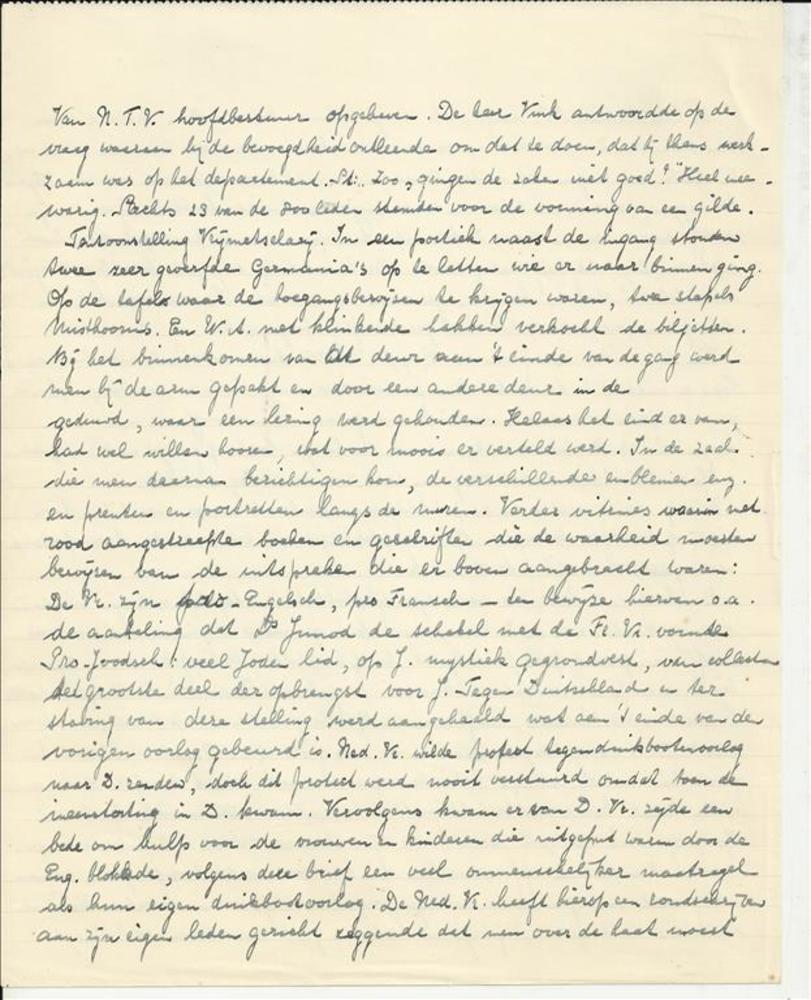 Van N.T.V. hoofdbestuur opgeheven. De heer Vink antwoordde op de
vraag waaraan hij de bevoegdheid ontleende om dat te doen, dat hij thans werk-
zaam was op het departement. St: Zoo, gingen de zaken niet goed? "Heel wee-
warig. Slechts 23 van de 800 leden stemden voor de vorming van een gilde.
Tentoonstelling Vrijmetselarij. In een portiek naast de ingang stonden
twee zeer geverfde Germania's op te letten wie er naar binnen ging.
Op de tafels waar de toegangsbewijzen te krijgen waren, twee stapels
Misthoorns. En W.A. met klinkende hakken verkocht de biljetten.
Bij het binnenkomen van de deur aan 't einde van de gang werd
men bij de arm gepakt en door een andere deur in de
geduwd, waar een lezing werd gehouden. Helaas het eind er van,
had wel willen hooren, wat voor moois er verteld werd. In de zaal
die men daarna bezichtigen kon, de verschillende emblemen enz.
en prenten en portretten langs de muren. Verder vitrines waarin met
rood aangestreepte boeken en geschriften die de waarheid moesten
bewijzen van de uitspraken die er boven aangebracht waren:
De Vr. zijn pro-Engelsch, pro Fransch – ten bewijze hiervan o.a.
de aanhaling dat Ds Junod de schakel met de Fr. Vr. vormde
Pro-Joodsch: veel Joden lid, op J. mystiek gegrondvest, van collecten
het grootste deel der opbrengst voor J. Tegen Duitschland en ter
staving van deze stelling werd aangehaald wat aan 't einde van den
vorigen oorlog gebeurd is. Ned. Vr. wilde protest tegen duikbootoorlog
naar D. zenden, doch dit protest werd nooit verstuurd omdat toen de
ineenstorting in D. kwam. Vervolgens kwam er van D. Vr. zijde een
bede om hulp voor de vrouwen en kinderen die uitgeput waren door de
Eng. blokkade, volgens deze brief een veel onmenschelijker maatregel
als hun eigen duikbootoorlog. De Ned. Vr. heeft hierop een rondschrijven
aan zijn eigen leden gericht zeggende dat men over de haat moest